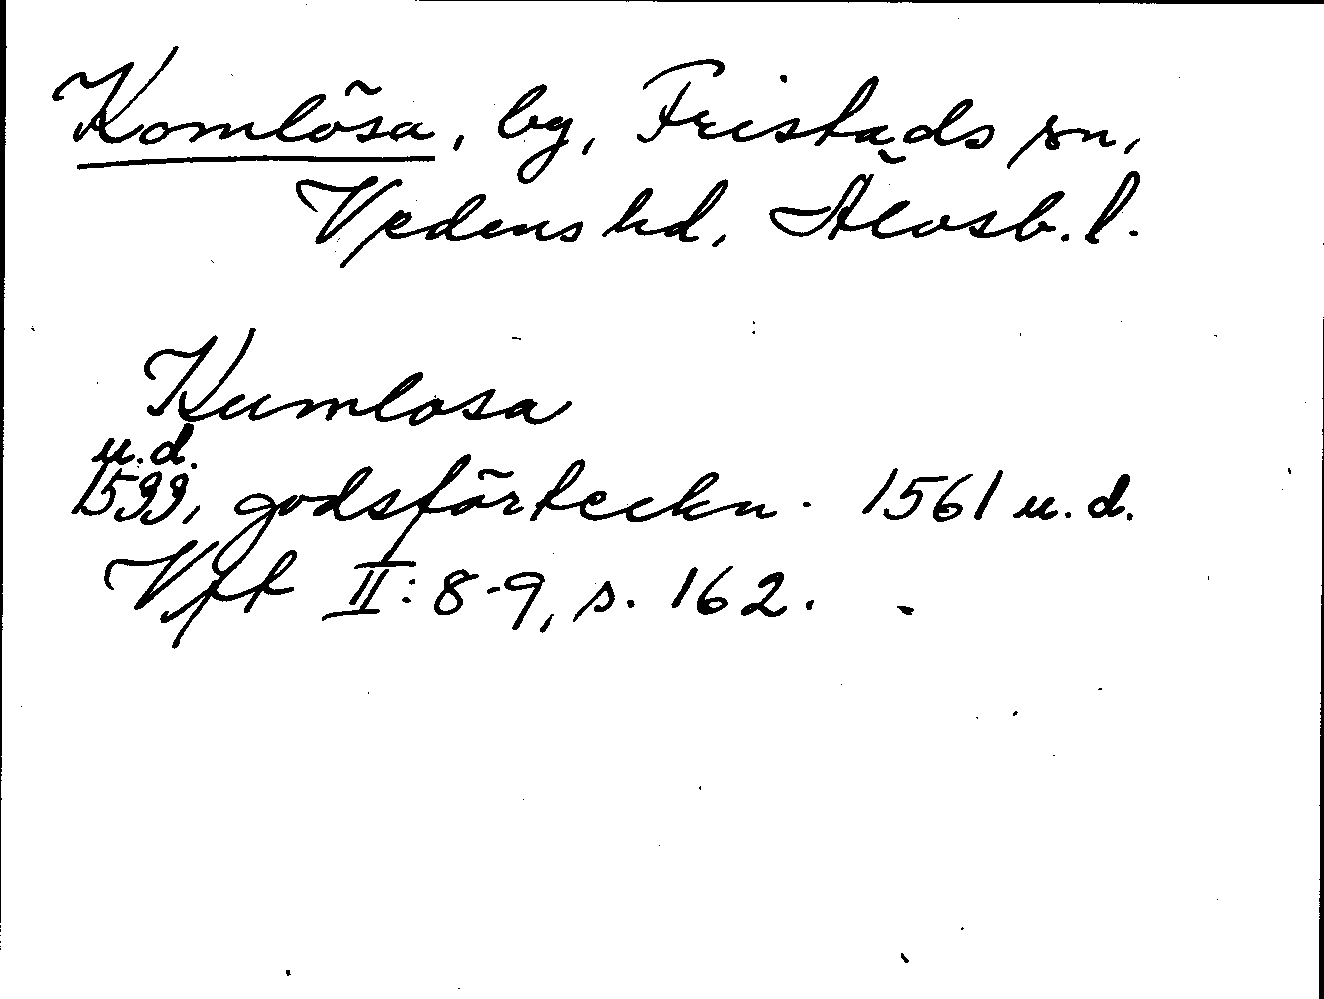 Komlösa, by, Fristads sn,
Vedens hd, Älvsb. l.
Kumlosa
u.d.
1599, godsförteckn. 1561 u.d.
Vft II: 8-9, s. 162.